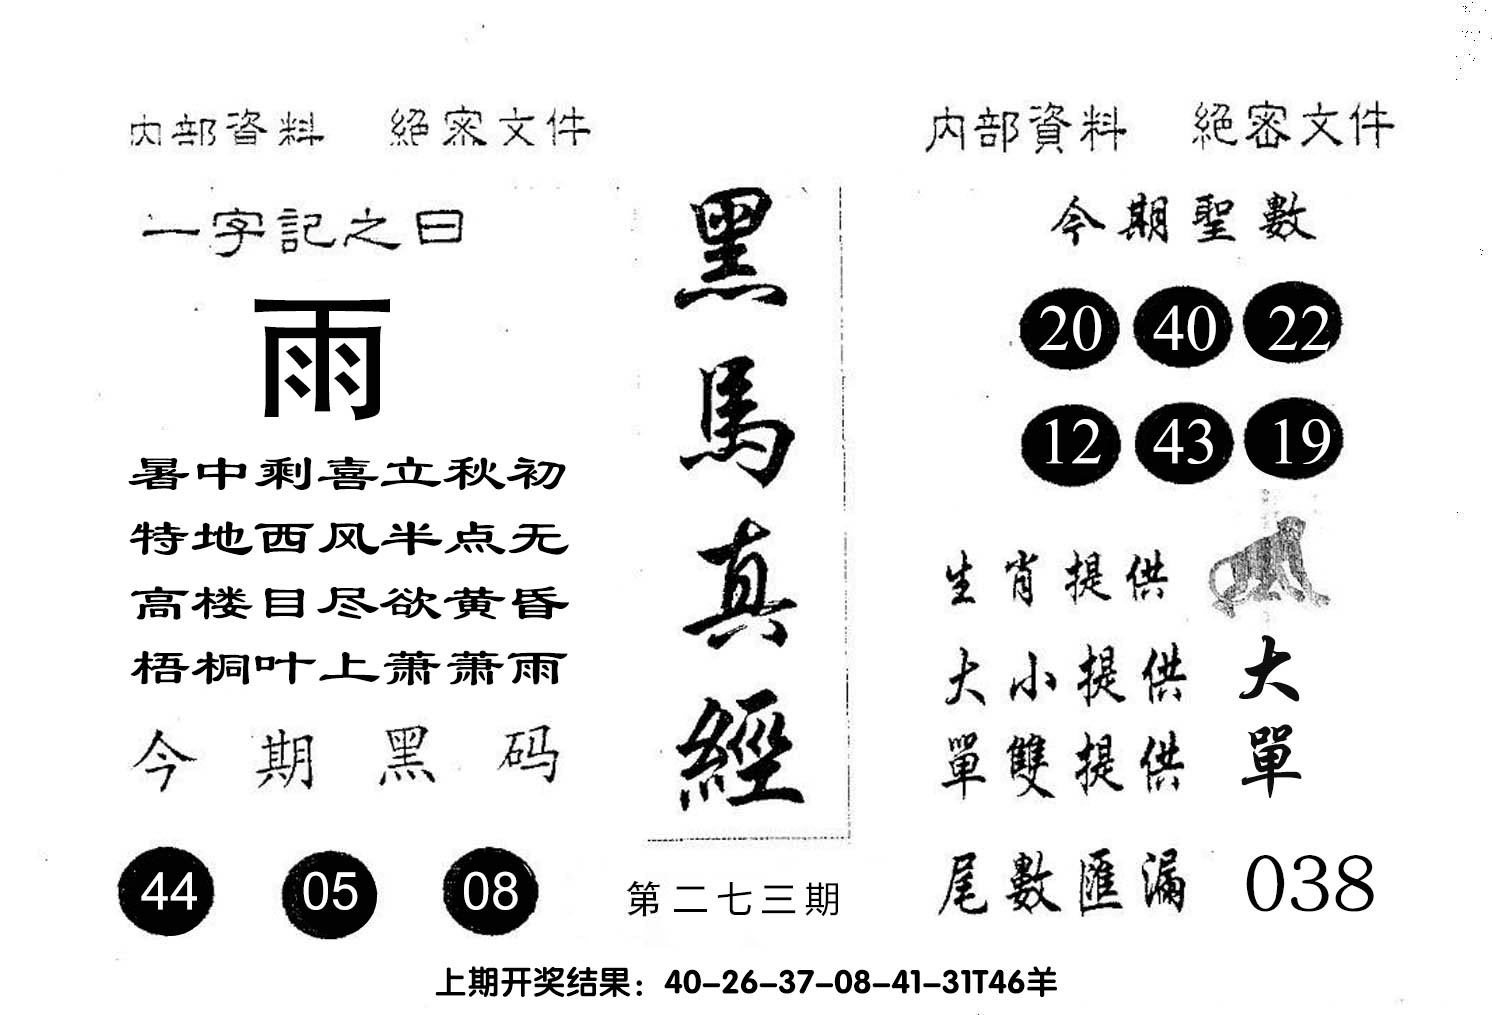 内部資料 絕密文件
一字記之曰
雨
暑中剩喜立秋初
特地西风半点无
高楼目尽欲黄昏
梧桐叶上萧萧雨
今期黑码
44 05 08
黑馬真經
第二七三期
内部資料 絕密文件
今期聖數
20 40 22
12 43 19
生肖提供
大小提供 大
單雙提供 單
尾數匯漏 038
上期开奖结果：40-26-37-08-41-31T46羊